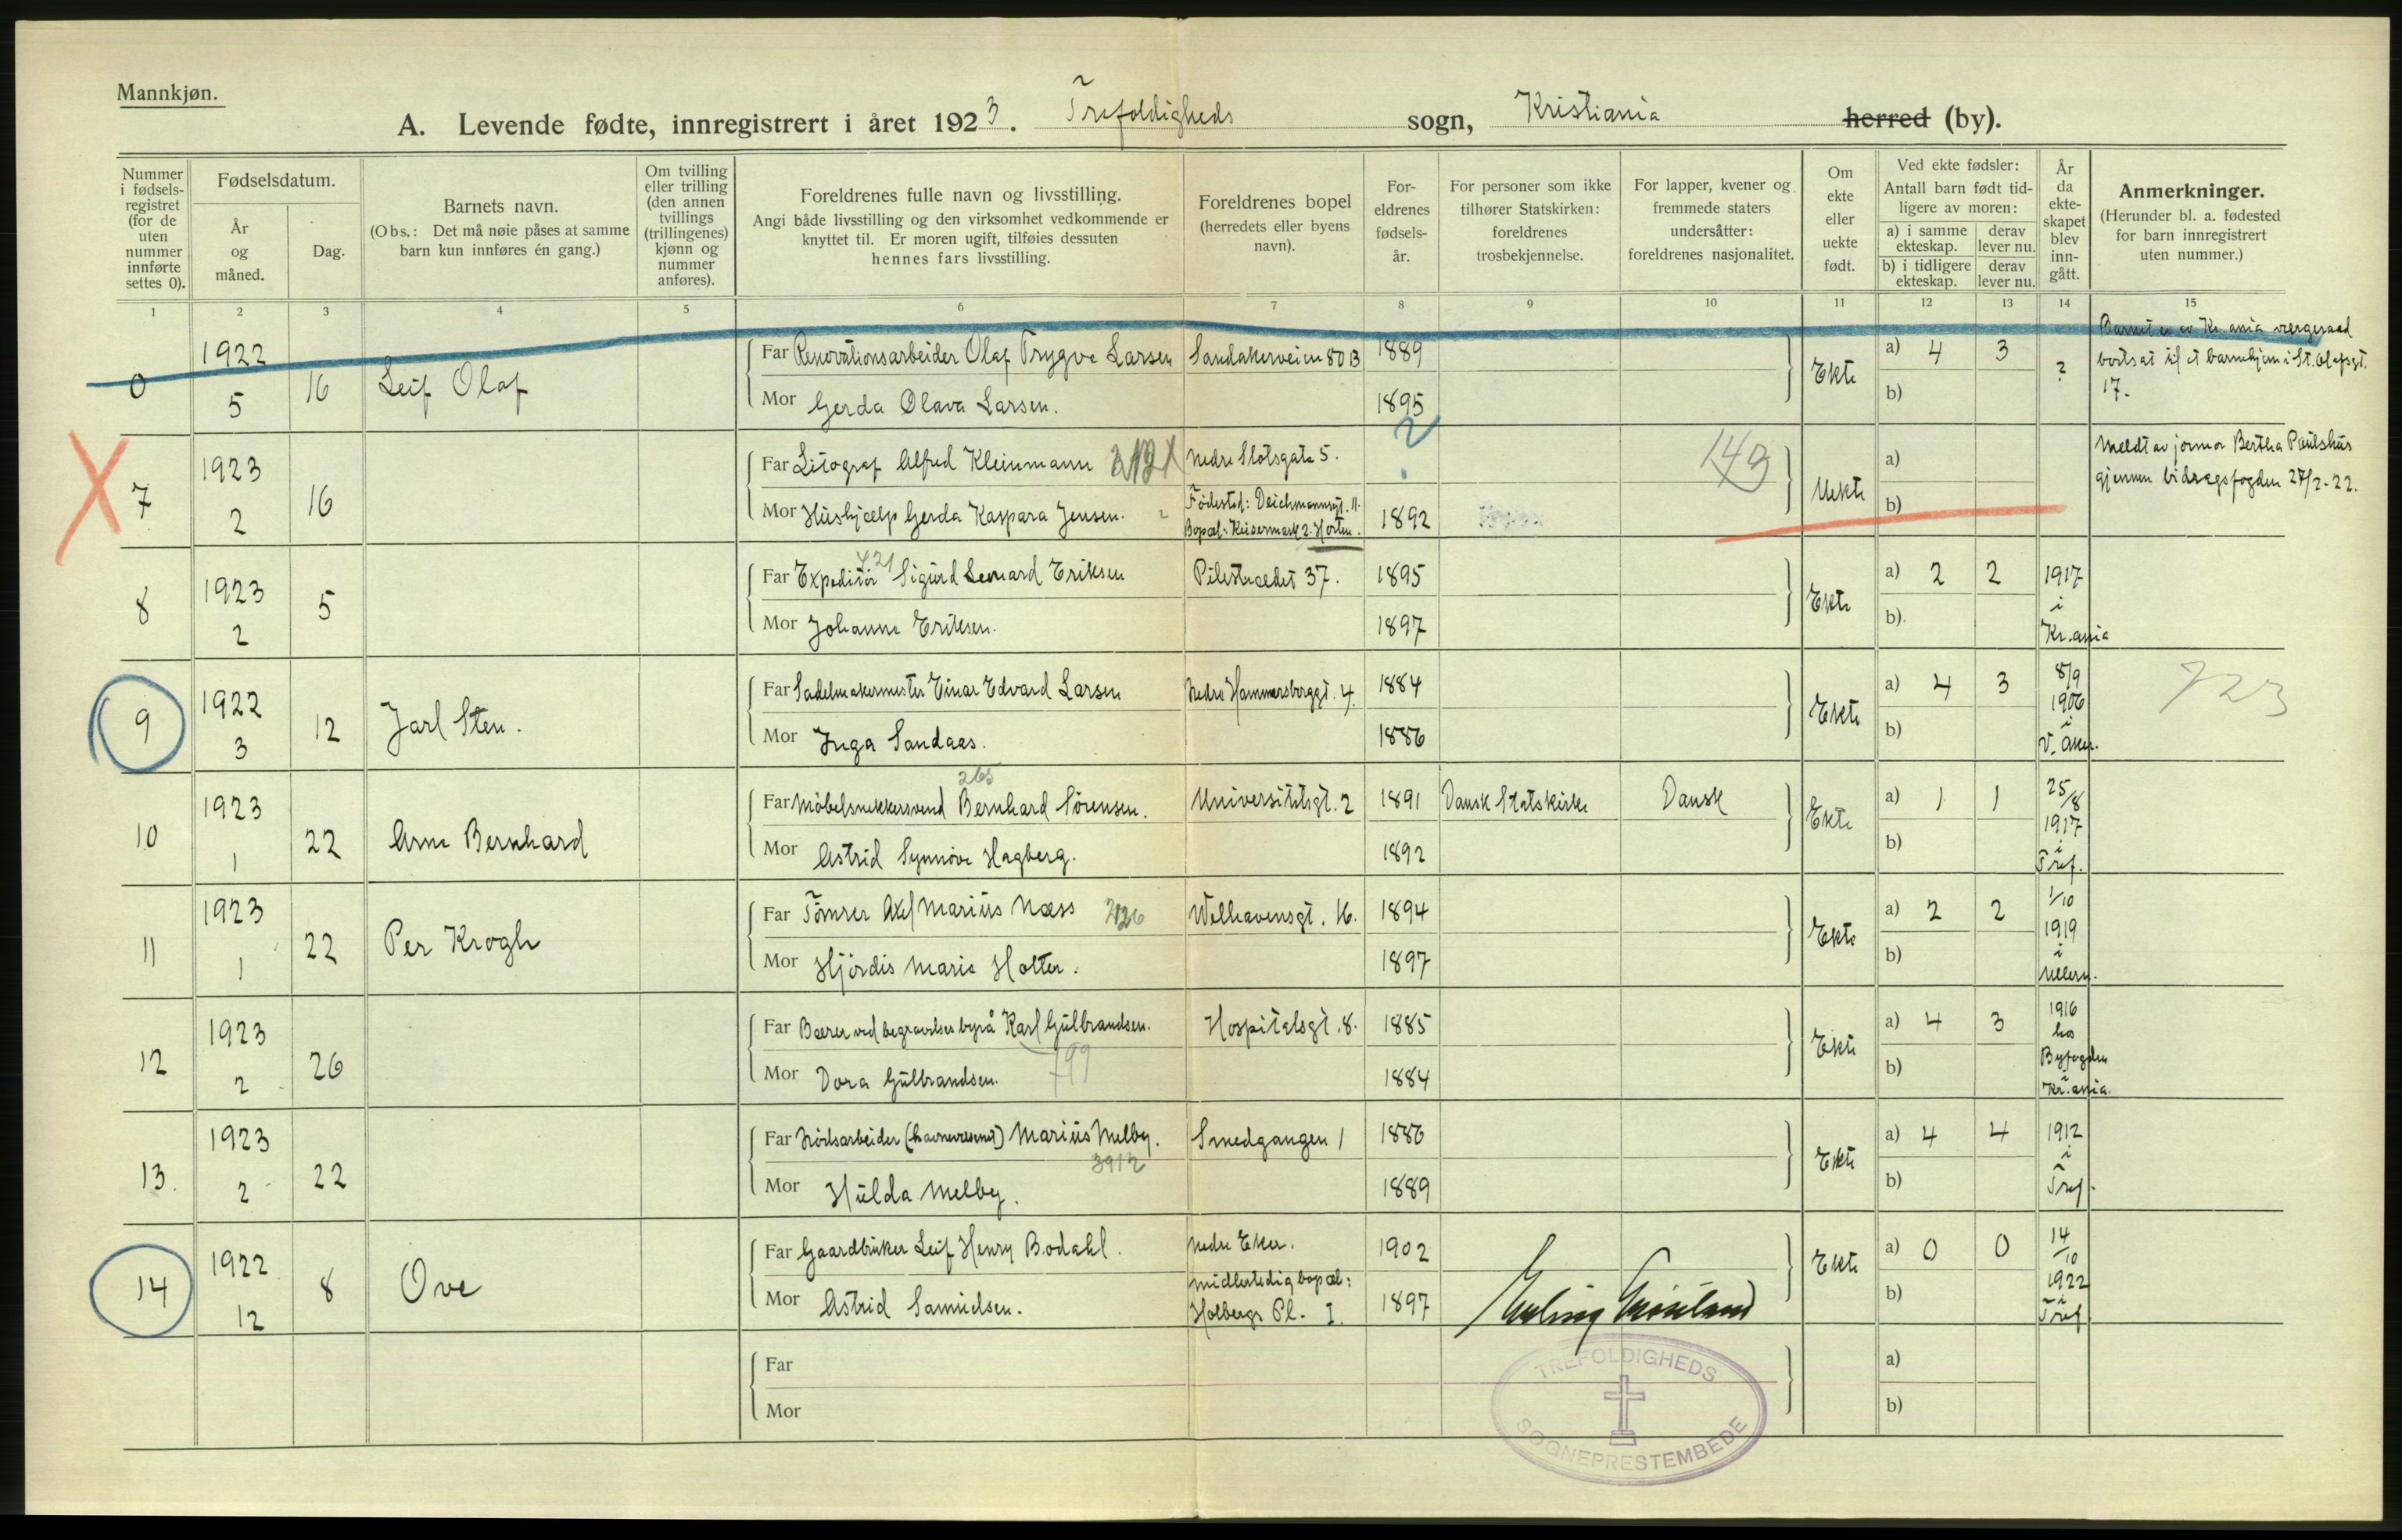 Mannkjøn.
A. Levende fødte, innregistrert i året 1923. Trefoldigheds sogn, Kristiania herred (by).
Nummer i fødsels-registret (for de uten nummer innførte settes 0).
Fødselsdatum.
År og måned.
Dag.
Barnets navn.
(Obs.: Det må nøie påses at samme barn kun innføres én gang.)
Om tvilling eller trilling (den annen tvillings (trillingenes) kjønn og nummer anføres).
Foreldrenes fulle navn og livsstilling.
Angi både livsstilling og den virksomhet vedkommende er knyttet til. Er moren ugift, tilføies dessuten hennes fars livsstilling.
Foreldrenes bopel (herredets eller byens navn).
For-eldrenes fødsels-år.
For personer som ikke tilhører Statskirken: foreldrenes trosbekjennelse.
For lapper, kvener og fremmede staters undersåtter: foreldrenes nasjonalitet.
Om ekte eller uekte født.
Ved ekte fødsler:
Antall barn født tid-ligere av moren:
a) i samme ekteskap. derav lever nu.
b) i tidligere ekteskap. derav lever nu.
År da ekte-skapet blev inn-gått.
Anmerkninger.
(Herunder bl. a. fødested for barn innregistrert uten nummer.)
1 2 3 4 5 6 7 8 9 10 11 12 13 14 15
0 1922 5 16 Leif Olaf
Far Renovationsarbeider Olaf Trygve Larsen Sandakerveien 80 B 1889
Mor Gerda Olava Larsen. 1895
Ekte a) 4 3 b) ?
Barnet er av Kr.ania vergeraad
bortsat til et barnehjem i St. Olafsgt.
17.
7 1923 2 16
Far Litograf Alfred Kleinmann Nedre Slotsgate 5. 2
Mor Hushjælp Gerda Kaspara Jensen. Fødested: Deichmannsgt. 11.
Bopæl: Keisermark 2. Horten. 1892
149
Uekte a) b)
Meldt av jormor Bertha Paulshus
gjennem bidragsfogden 27/2-22.
8 1923 2 5
421
Far Expeditør Sigurd Leonard Eriksen Pilestrædet 37. 1895
Mor Johanne Eriksen. 1897
Ekte a) 2 2 b). 1917 i Kr.ania
9 1922 3 12 Jarl Sten.
Far Sadelmakermester Einar Edvard Larsen Nedre Hammersborggt. 4. 1884
Mor Inga Sandaas. 1886
Ekte a) 4 3 b) 8/9 1906 i V. Aker.
723
10 1923 1 22 Arne Bernhard
265
Far Møbelsnekkersvend Bernhard Sörensen. Universitetsgt. 2 1891 Dansk Statskirke Dansk
Mor Astrid Synnöve Hagberg. 1892
Ekte a) 1 1 b) 25/8 1917 i Tref.
11 1923 1 22 Per Krogh
Far Tömrer Axel Marius Næss Welhavensgt. 16. 1894
Mor Hjördis Marie Holter. 1897
Ekte a) 2 2 b) 1/10 1919 i Ullern.
12 1923 2 26
Far Bærer ved begravelsesbyrå Karl Gulbrandsen. Hospitalsgt. 8. 1885
Mor Dora Gulbrandsen. 799 1884
Ekte a) 4 3 b) 1916 hos Byfogden i Kr.ania.
13. 1923 2 22
Far Nödsarbeider (havnevesenet) Marius Melby. Smedgangen 1 1886
3912
Mor Hulda Melby. 1889
Ekte a) 4 4 b) 1912 i Tref.
14 1922 12 8 Ove
Far Gaardbruker Leif Henry Bodahl. Nedre Eker. 1902
Mor Astrid Samuelsen. midlertidig bopæl:
Holbergs Pl. I. 1897
Ekte a) 0 0 b) 14/10 1922 i Tref.
Erling Grönland
Far
Mor
a)
b)
TREFOLDIGHEDS
SOGNEPRESTEMBEDE